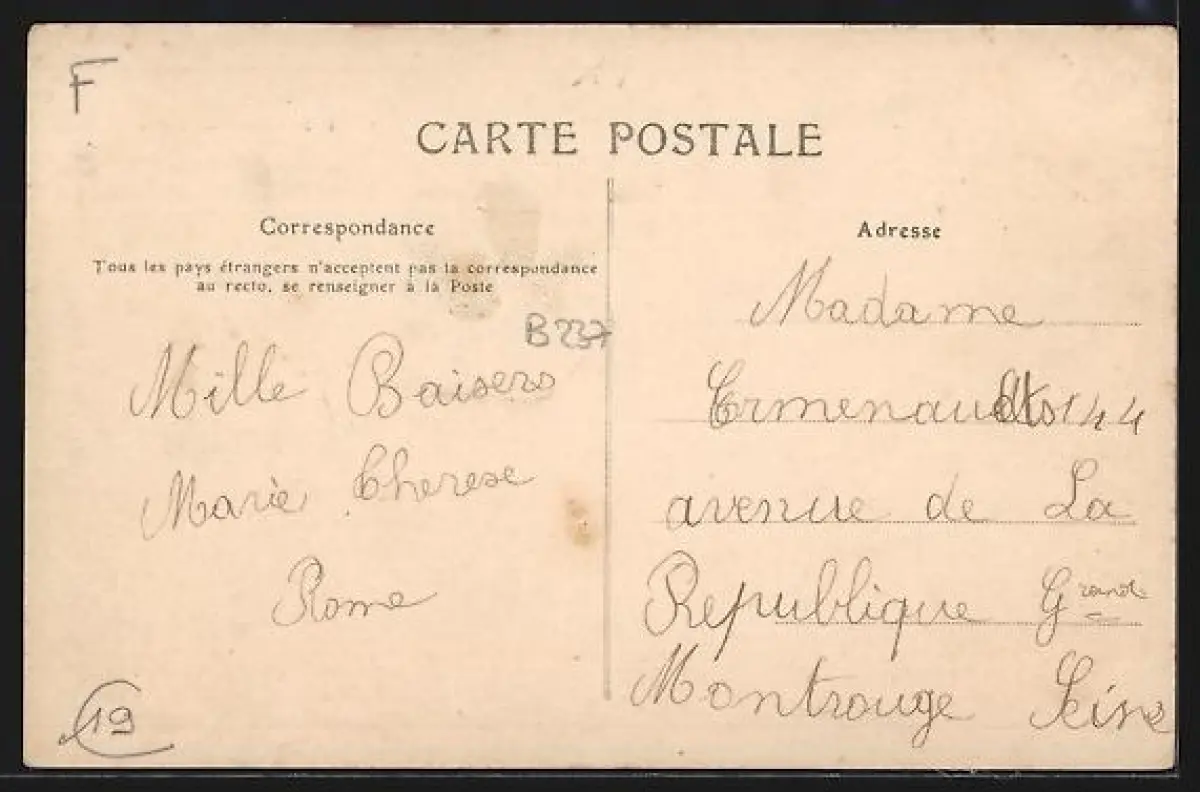 F
CARTE POSTALE
Correspondance
Tous les pays étrangers n'acceptent pas la correspondance
au recto, se renseigner à la Poste
B237
Mille Baisers
Marie Therese
Rome
19
Adresse
Madame
144
avenue de La
Republique Grand
Montrouge Seine